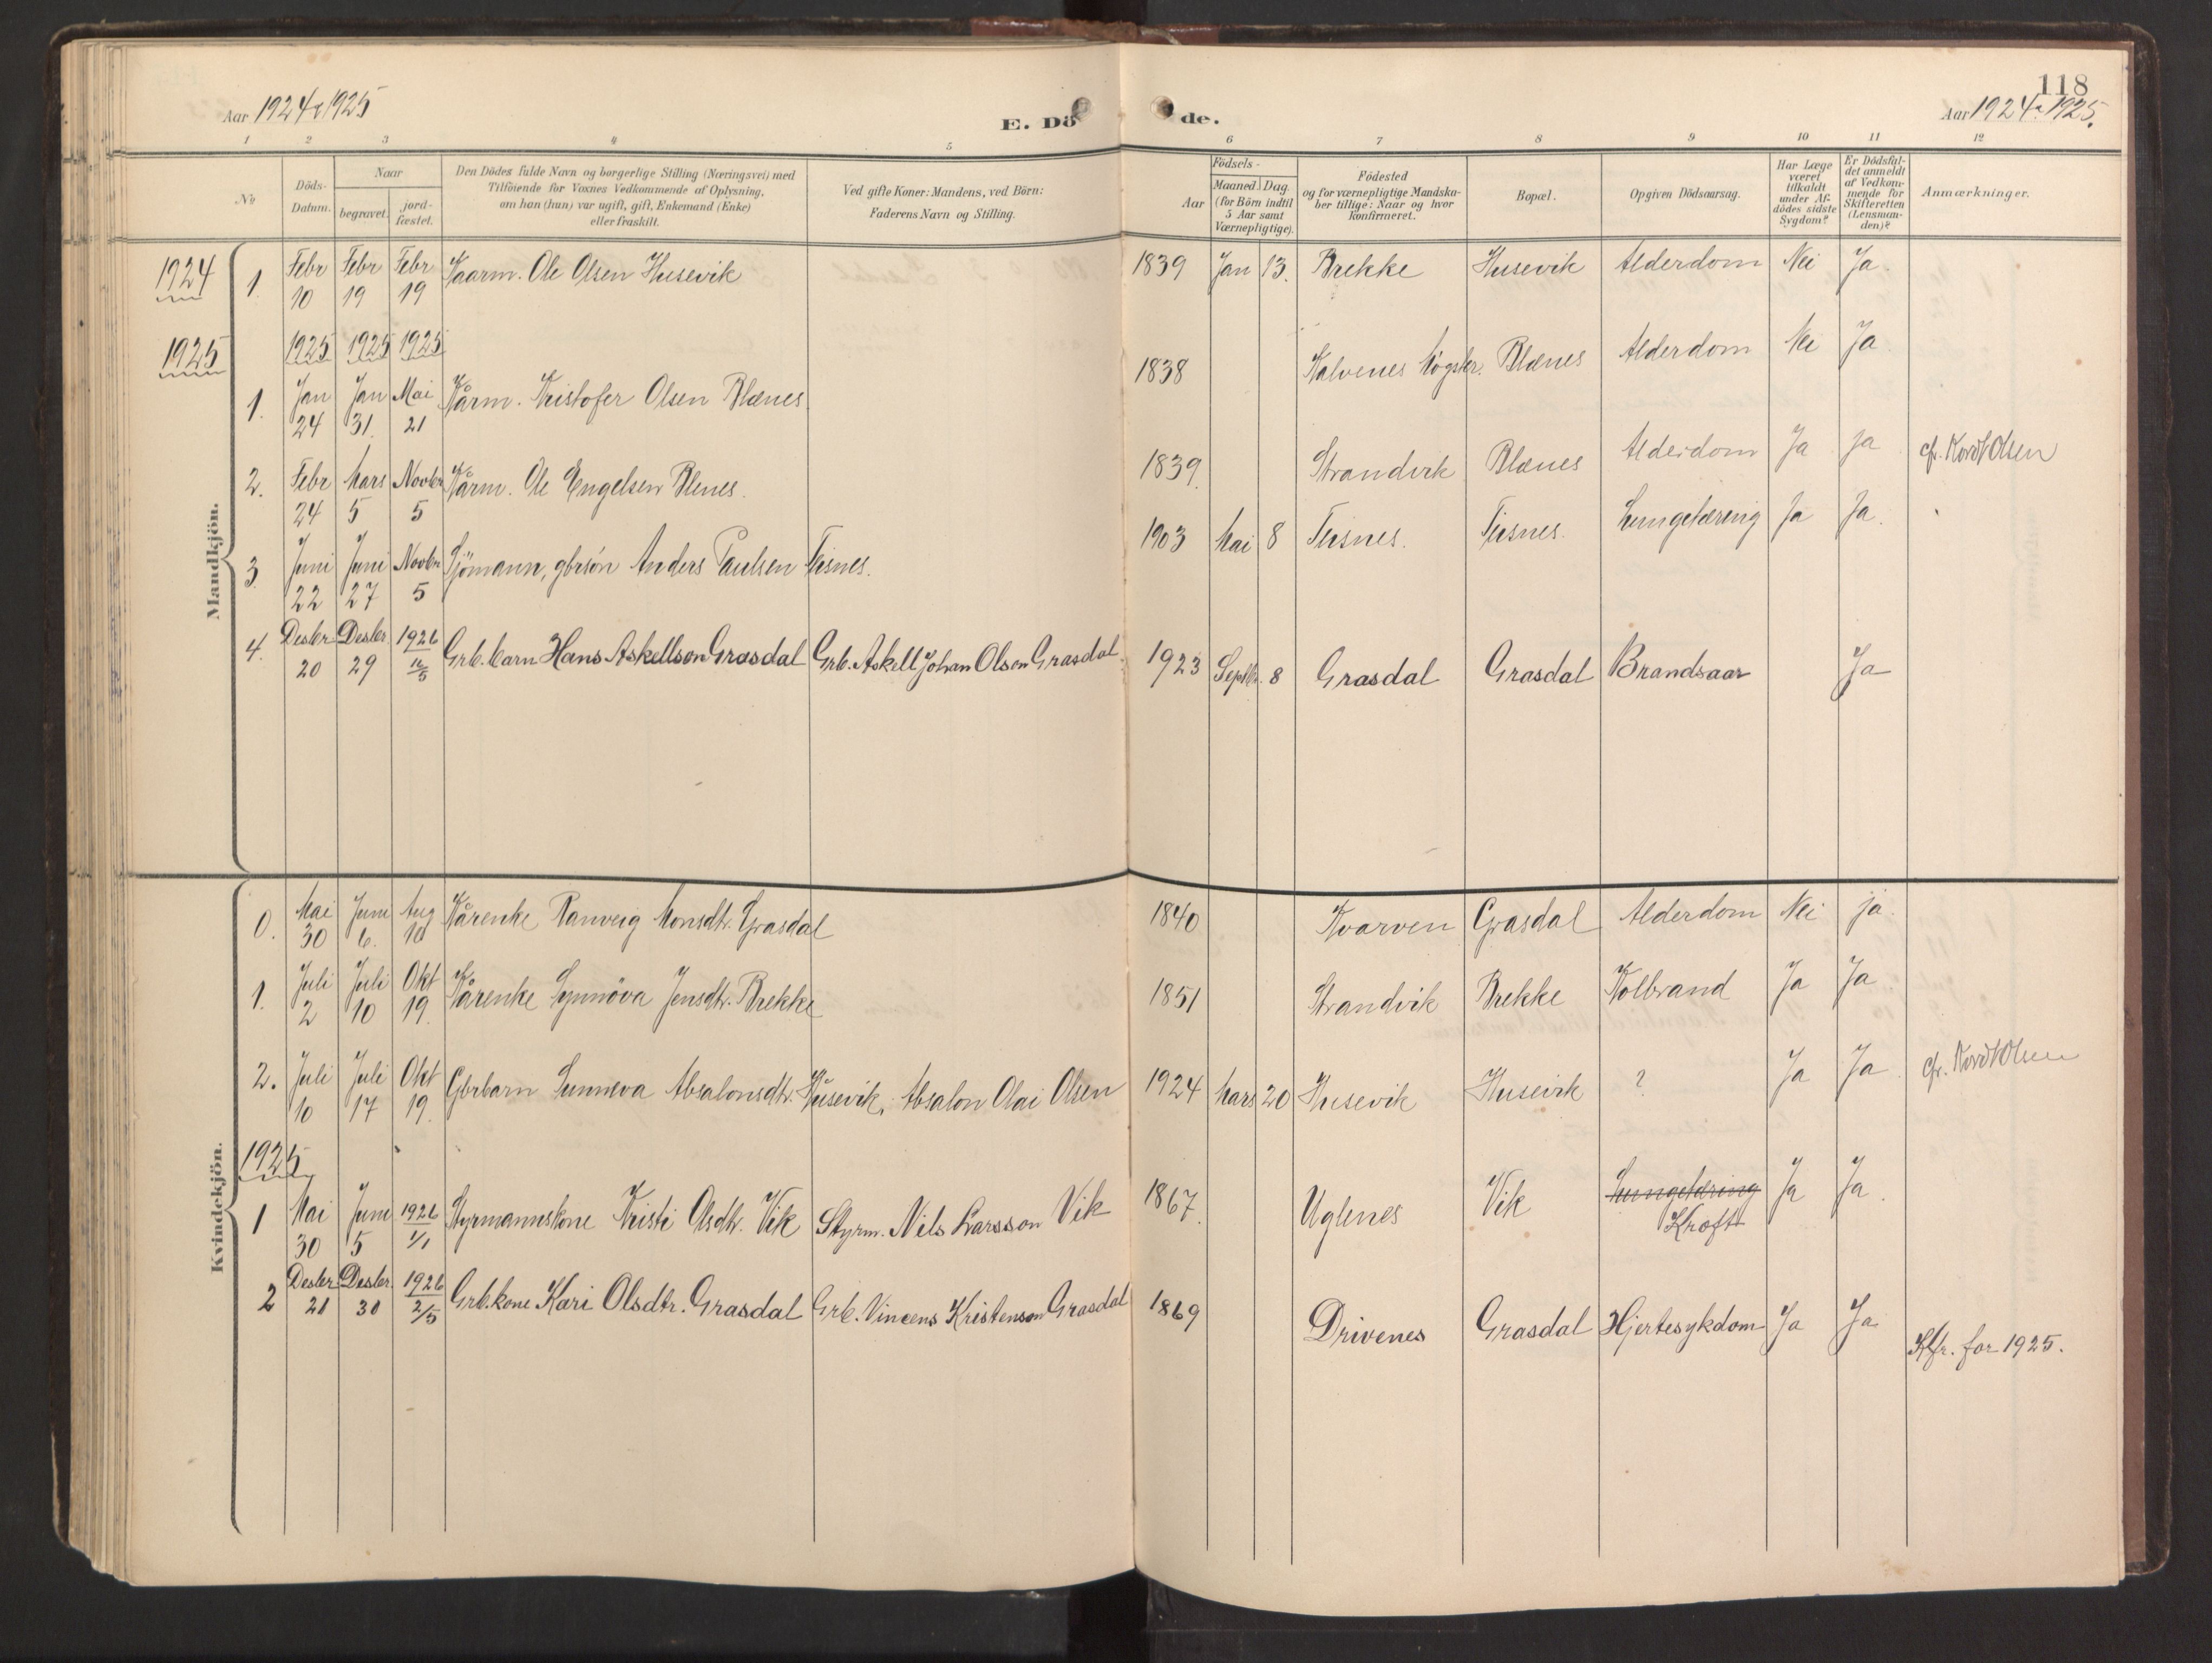 118
Aar 1924 & 1925
E. Döde.
Aar 1924 & 1925.
1 2 3 4 5 6 7 8 9 10 11 12
No
Döds-Datum.
Naar
begravet.
jord-fæstet.
Den Dödes fulde Navn og borgerlige Stilling (Næringsvei) med
Tilföiende for Voxnes Vedkommende af Oplysning,
om han (hun) var ugift, gift, Enkemand (Enke)
eller fraskilt.
Ved gifte Koner: Mandens, ved Börn:
Faderens Navn og Stilling.
Födsels-
Aar
Maaned. Dag.
(for Börn indtil
5 Aar samt
Værnepligtige).
Födested
og for værnepligtige Mandska-
ber tillige: Naar og hvor
Konfirmeret.
Bopæl.
Opgiven Dödsaarsag.
Har Læge
været
tilkaldt
under Af-
dödes sidste
Sygdom?
Er Dödsfal-
det anmeldt
af Vedkom-
mende for
Skifteretten
(Lensman-
den)?
Anmærkninger.
Mandkjön.
1924
1. Febr 10 Febr 19 Febr 19 Kaarm. Ole Olsen Husevik 1839 Jan 13. Brekke Husevik Alderdom Nei Ja
1925 1925 1925 1925
1. Jan 24 Jan 31. Mai 21 Kårm. Kristofer Olsen Blænes 1838 Kalvenes Blænes Alderdom Nei Ja
2. Febr 24 Mars 5 Novbr 5 Kårm. Ole Engelsen Blenes. 1839 Strandvik Blænes Alderdom Ja ja cfr. Kordt Olsen
3 Juni 22 Juni 27 Novbr 5 Sjömann, gbrsön Anders Paulsen Teisnes. 1903 Mai 8 Teisnes. Teisnes. Lungetæring Ja Ja.
4. Desbr 20 Desbr 29 1926 16/5 Grb. barn Hans Askellson Grasdal Grb. Askell Johan Olson Grasdal. 1923 Septbr. 8 Grasdal Grasdal Brandsaar Ja
Kvindekjön.
0. Mai 30 Juni 6. Aug 10 Kårenke Ranveig Monsdtr. Grasdal 1840 Kvarven Grasdal Alderdom Nei ja.
1. Juli 2 Juli 10 Okt 19. Kårenke Synnöva Jensdtr. Brekke 1851 Strandvik Brekke Kolbrand Ja Ja
2. Juli 10 Juli 17 Okt 19. Gbrbarn Sunneva Absalonsdtr. Husevik. Absalon Olai Olsen 1924 Mars 20 Husevik Husevik ? Ja Ja cfr. Kordt Olsen
1925
1 Mai 30 Juni 5 1926 1/1 Styrmannskone Kristi Olsdtr. Vik Styrm. Nils Larsson Vik 1867. Uglenes Vik Lungetæring Kræft Ja Ja.
2 Desbr 21 Desbr 30 1926 2/5 Grb. kone Kari Olsdtr. Grasdal Grb. Vincens Kristenson Grasdal 1869 Drivenes Grasdal Hjertesykdom Ja Ja
Kfr. for 1925.